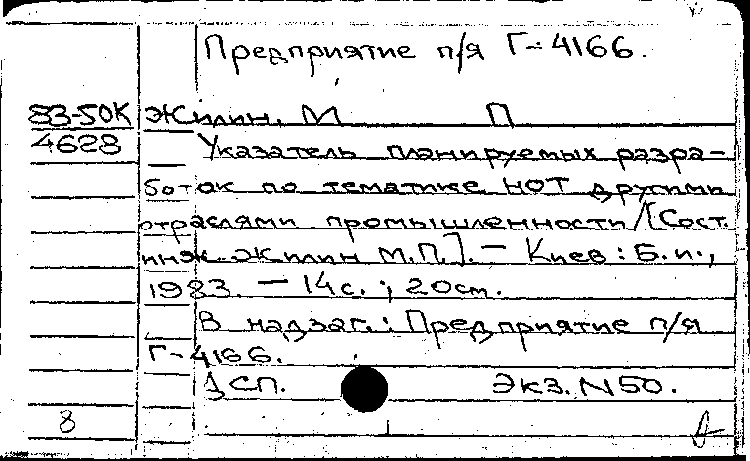 Предприятие п/я Г-4166.
83-50К Жилин, М П
4628 Указатель планируемых разра-
боток по тематике НОТ другими
отраслями промышленности/[Сост.
инж. Жилин М.П.]. — Киев: Б.и.,
1983. — 14с.; 20см.
В надзаг.: Предприятие п/я
Г-4166.
ДСП. Экз. N50.
8